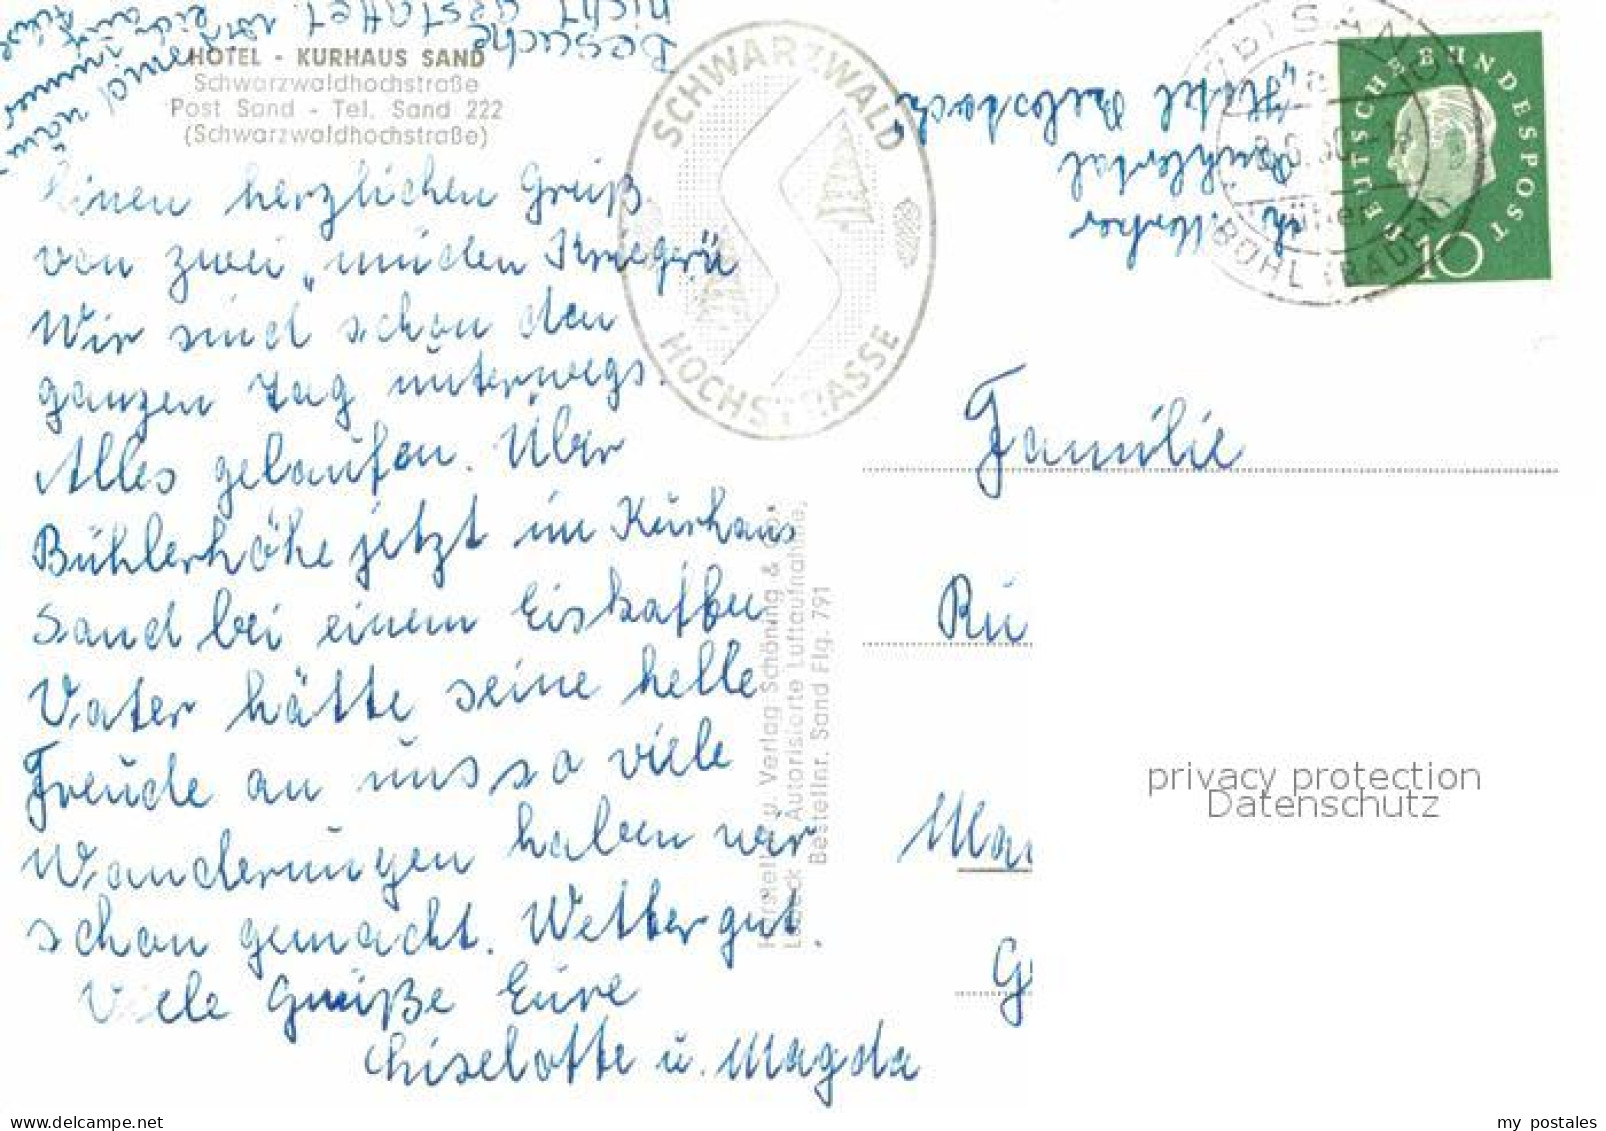 Besuche
nicht gestattet.
HOTEL - KURHAUS SAND
Schwarzwaldhochstraße
Post Sand - Tel. Sand 222
(Schwarzwaldhochstraße)
Einen herzlichen Gruß
von zwei „müden Kriegern“
Wir sind schon den
ganzen Tag unterwegs.
Alles gelaufen. Über
Bühlerhöhe jetzt im Kurhaus
Sand bei einem Eiskaffee
Vater hätte seine helle
Freude an uns so viele
Wanderungen haben wir
schon gemacht. Wetter gut.
Viele Grüße Eure
Liselotte u. Magda
SCHWARZWALD
HOCHSTRASSE
Herstell. u. Verlag Schöning & Co.
Lübeck Autorisierte Luftaufnahme,
Bestellnr. Sand Flg. 791
Bühlertal
SAND
über
BÜHL (BADEN)
DEUTSCHE BUNDESPOST
10
Familie
Rü
Ma
G
privacy protection
Datenschutz
my postales